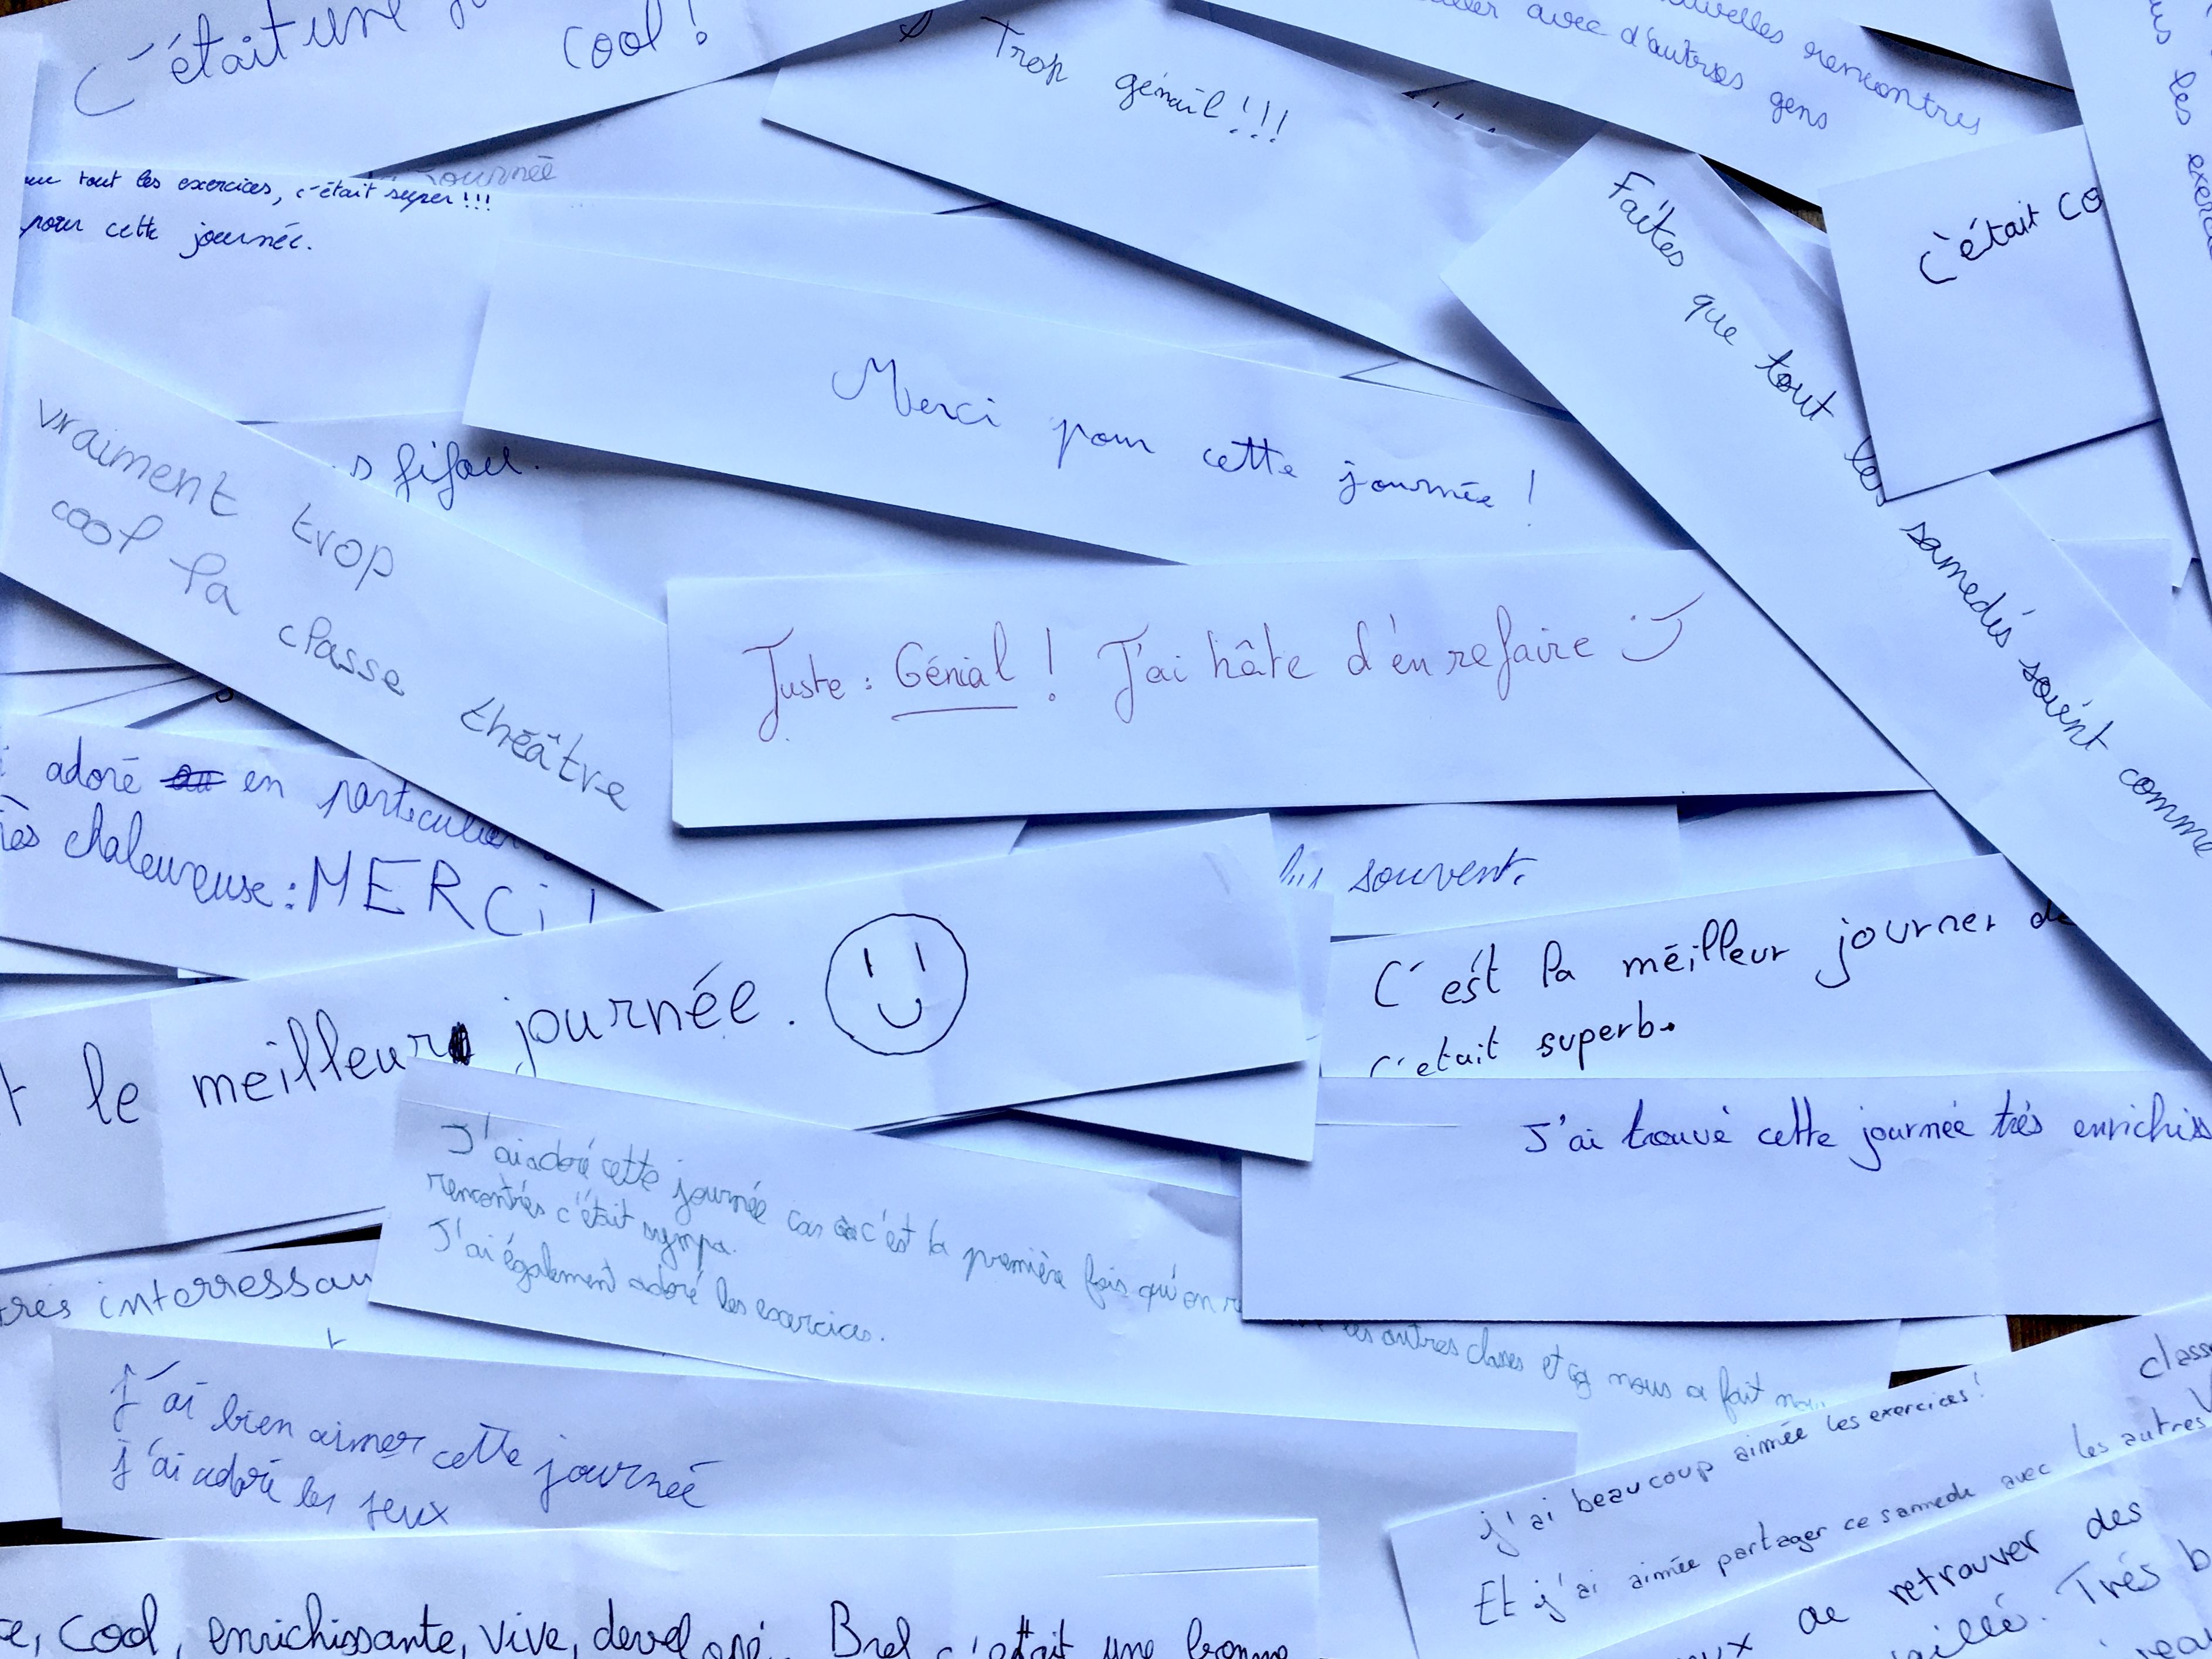 C'était une
cool !
Trop génail !!!
nouvelles rencontres
avec d'autres gens
les
journée
tout les exercices, c'était super !!!
pour cette journée.
C'était co
Faites que tout les samedis soient comme
Merci pour cette journée !
vraiment trop
cool la classe théâtre
s fifou.
Juste : Génial ! J'ai hâte d'en refaire :)
adoré en particulier
chaleureuse : MERCi !
souvent.
le meilleur journée.
C'est la meilleur journer de
c'etait superb.
J'ai trouvé cette journée trés enrichis
J'ai adoré cette journée car c'est la première fois qu'on r
rencontrés c'était sympa.
J'ai également adoré les exercices.
les autres classes et ça nous a fait
tres interressan
J'ai bien aimer cette journée
j'ai adoré les jeux
class
j'ai beaucoup aimée les exercices !
Et j'ai aimée partager ce samedi avec les autres
de retrouver des
Trés b
ce, cool, enrichissante, vive, Bref c'était une bonne